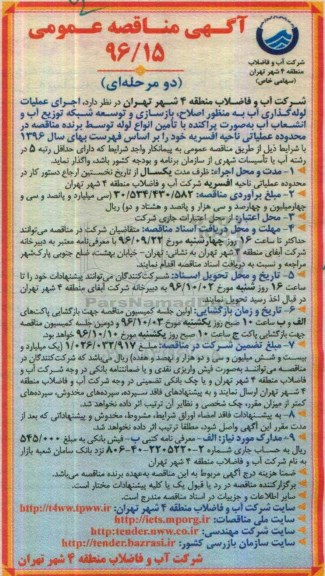 آگهی مناقصه عمومی
۹۶/۱۵
(دو مرحله‌ای)
شرکت آب و فاضلاب
منطقه ۴ شهر تهران
(سهامی خاص)
شرکت آب و فاضلاب منطقه ۴ شهر تهران در نظر دارد، اجرای عملیات
لوله‌گذاری آب به منظور اصلاح، بازسازی و توسعه شبکه توزیع آب و
انشعاب آب به‌صورت پراکنده با تأمین انواع لوله توسط برنده مناقصه در
محدوده عملیاتی ناحیه افسریه خود را بر اساس فهرست بهای سال ۱۳۹۶
با شرایط ذیل از طریق مناقصه عمومی به پیمانکار واجد شرایط که دارای حداقل رتبه ۵ در
رشته آب یا تأسیسات شهری از سازمان برنامه و بودجه کشور باشد، واگذار نماید.
۱- مدت و محل اجرا: ظرف مدت یکسال از تاریخ نخستین ارجاع دستور کار در
محدوده عملیاتی ناحیه افسریه شرکت آب و فاضلاب منطقه ۴ شهر تهران
۲- مبلغ برآوردی مناقصه: ۳۰/۵۳۴/۴۳۰/۵۸۲ (سی میلیارد و پانصد و سی و
چهارمیلیون و چهارصد و سی هزار و پانصد و هشتاد و دو ریال
۳- محل اعتبار: از محل اعتبارات جاری شرکت
۴- مهلت و محل دریافت اسناد مناقصه: متقاضیان شرکت در مناقصه می‌توانند
حداکثر تا ساعت ۱۶ روز چهارشنبه مورخ ۹۶/۰۹/۲۲ با معرفی‌نامه معتبر به دبیرخانه
شرکت آبفای منطقه ۴ شهر تهران به نشانی: تهران - خیابان بهشت، ضلع جنوبی پارک‌شهر
مراجعه و نسبت به دریافت اسناد مناقصه اقدام نمایند.
۵- تاریخ و محل تحویل اسناد: شرکت‌کنندگان می‌توانند پیشنهادات خود را تا
ساعت ۱۶ روز شنبه مورخ ۹۶/۱۰/۰۲ به دبیرخانه شرکت آبفای منطقه ۴ تهران
در قبال اخذ رسید تحویل نمایند.
۶- تاریخ و زمان بازگشایی: اولین جلسه کمیسیون مناقصه جهت بازگشایی پاکت‌های
الف و ب ساعت ۱۰ صبح روز یکشنبه مورخ ۹۶/۱۰/۰۳ و دومین جلسه کمیسیون مناقصه
جهت بازگشایی پاکت ج ساعت ۱۰ صبح روز یکشنبه مورخ ۹۶/۱۰/۱۰ خواهد بود.
۷- مبلغ تضمین شرکت در مناقصه: مبلغ ۱/۰۲۶/۰۳۲/۹۱۷ (یک میلیارد و
بیست و شش میلیون و سی و دو هزار و نهصد و هفده) ریال می‌باشد که شرکت‌کنندگان در
مناقصه می‌توانند به‌صورت فیش واریزی نقدی و یا ضمانتنامه بانکی در وجه شرکت آب و
فاضلاب منطقه ۴ شهر تهران و یا چک بانکی تضمینی در وجه شرکت آب و فاضلاب منطقه
۴ شهر تهران ارسال نمایند و به پیشنهادهای فاقد سپرده، سپرده‌های مخدوش، سپرده‌های
کمتر از میزان مقرر، چک شخصی و نظایر آن ترتیب اثر داده نخواهد شد.
۸- به پیشنهادات فاقد امضاء اوراق شرایط، مشروط، مخدوش و پیشنهاداتی که بعد از
مدت مقرر این آگهی واصل شود، مطلقا ترتیب اثر داده نخواهد شد.
۹- مدارک مورد نیاز: الف- معرفی نامه کتبی ب- فیش بانکی به مبلغ ۵۴۵/۰۰۰
ریال به حساب جاری شماره نزد بانک سامان شعبه بازار
به نام شرکت آب و فاضلاب منطقه ۴ شهر تهران
ضمنا هزینه درج آگهی مربوط به این مناقصه به‌عهده برنده مناقصه می‌باشد.
برگزارکننده مناقصه در رد یا قبول یک یا کلیه پیشنهادات مختار است.
سایر اطلاعات و جزییات در اسناد مناقصه مندرج است.
سایت شرکت آب و فاضلاب منطقه ۴ شهر تهران: http://t4ww.tpww.ir
سایت ملی مناقصات: http://iets.mporg.ir
سایت شرکت مهندسی: http://tender.nww.co.ir
سایت سازمان بازرسی کشور: http://tender.bazrasi.ir
شرکت آب و فاضلاب منطقه ۴ شهر تهران